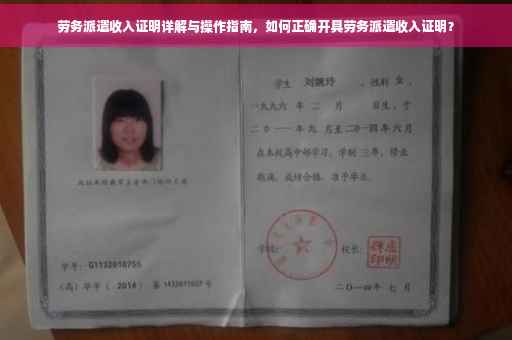 劳务派遣收入证明详解与操作指南，如何正确开具劳务派遣收入证明？
学生 刘婉玲 ，性别 女 ，
一九九六 年 二 月 日生，于
二〇一一年九 月至二〇一四年 六月
在本校高中部学习，学制 三年，修业
期满，成绩合格，准予毕业。
学号：G1132010755
学校：
校长：
（高）毕字（ 2014 ）第 1432011027 号
二〇一四年 七 月